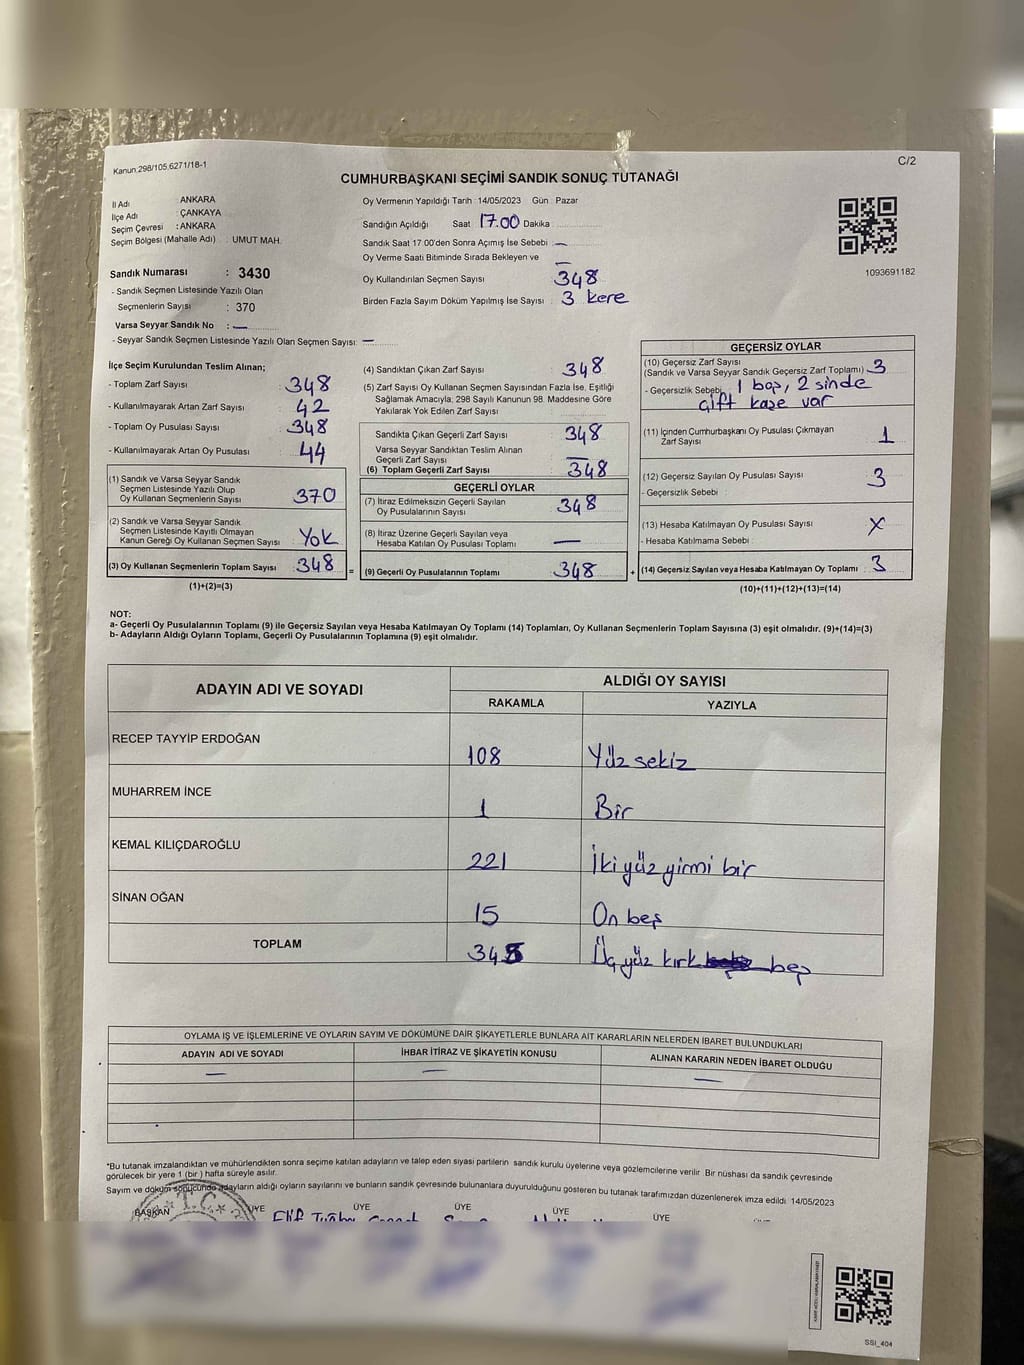 Kanun:298/105,6271/18-1
C/2
CUMHURBAŞKANI SEÇİMİ SANDIK SONUÇ TUTANAĞI
İl Adı : ANKARA
İlçe Adı : ÇANKAYA
Seçim Çevresi : ANKARA
Seçim Bölgesi (Mahalle Adı) : UMUT MAH.
Sandık Numarası : 3430
- Sandık Seçmen Listesinde Yazılı Olan
Seçmenlerin Sayısı : 370
Varsa Seyyar Sandık No : —
- Seyyar Sandık Seçmen Listesinde Yazılı Olan Seçmen Sayısı: —
Oy Vermenin Yapıldığı Tarih : 14/05/2023 Gün : Pazar
Sandığın Açıldığı Saat 17.00 Dakika
Sandık Saat 17.00'den Sonra Açımış İse Sebebi : —
Oy Verme Saati Bitiminde Sırada Bekleyen ve —
Oy Kullandırılan Seçmen Sayısı : 348
Birden Fazla Sayım Döküm Yapılmış İse Sayısı : 3 kere
1093691182
İlçe Seçim Kurulundan Teslim Alınan;
- Toplam Zarf Sayısı 348
- Kullanılmayarak Artan Zarf Sayısı : 42
- Toplam Oy Pusulası Sayısı : 348
- Kullanılmayarak Artan Oy Pusulası : 44
(1) Sandık ve Varsa Seyyar Sandık
Seçmen Listesinde Yazılı Olup
Oy Kullanan Seçmenlerin Sayısı : 370
(2) Sandık ve Varsa Seyyar Sandık
Seçmen Listesinde Kayıtlı Olmayan
Kanun Gereği Oy Kullanan Seçmen Sayısı : Yok
(3) Oy Kullanan Seçmenlerin Toplam Sayısı : 348
(1)+(2)=(3)
(4) Sandıktan Çıkan Zarf Sayısı : 348
(5) Zarf Sayısı Oy Kullanan Seçmen Sayısından Fazla İse, Eşitliği
Sağlamak Amacıyla, 298 Sayılı Kanunun 98. Maddesine Göre
Yakılarak Yok Edilen Zarf Sayısı :
Sandıkta Çıkan Geçerli Zarf Sayısı : 348
Varsa Seyyar Sandıktan Teslim Alınan
Geçerli Zarf Sayısı : —
(6) Toplam Geçerli Zarf Sayısı : 348
GEÇERLİ OYLAR
(7) İtiraz Edilmeksizin Geçerli Sayılan
Oy Pusulalarının Sayısı : 348
(8) İtiraz Üzerine Geçerli Sayılan veya
Hesaba Katılan Oy Pusulası Toplamı : —
= (9) Geçerli Oy Pusulalarının Toplamı : 348 +
GEÇERSİZ OYLAR
(10) Geçersiz Zarf Sayısı
(Sandık ve Varsa Seyyar Sandık Geçersiz Zarf Toplamı) : 3
- Geçersizlik Sebebi : 1 boş, 2 sinde
çift kaşe var
(11) İçinden Cumhurbaşkanı Oy Pusulası Çıkmayan
Zarf Sayısı : 1
(12) Geçersiz Sayılan Oy Pusulası Sayısı : 3
- Geçersizlik Sebebi :
(13) Hesaba Katılmayan Oy Pusulası Sayısı : X
- Hesaba Katılmama Sebebi :
(14) Geçersiz Sayılan veya Hesaba Katılmayan Oy Toplamı : 3
(10)+(11)+(12)+(13)=(14)
NOT:
a- Geçerli Oy Pusulalarının Toplamı (9) ile Geçersiz Sayılan veya Hesaba Katılmayan Oy Toplamı (14) Toplamları, Oy Kullanan Seçmenlerin Toplam Sayısına (3) eşit olmalıdır. (9)+(14)=(3)
b- Adayların Aldığı Oyların Toplamı, Geçerli Oy Pusulalarının Toplamına (9) eşit olmalıdır.
ADAYIN ADI VE SOYADI ALDIĞI OY SAYISI
RAKAMLA YAZIYLA
RECEP TAYYİP ERDOĞAN 108 Yüz sekiz
MUHARREM İNCE 1 Bir
KEMAL KILIÇDAROĞLU 221 İki yüz yirmi bir
SİNAN OĞAN 15 On beş
TOPLAM 345 Üç yüz kırk beş
OYLAMA İŞ VE İŞLEMLERİNE VE OYLARIN SAYIM VE DÖKÜMÜNE DAİR ŞİKAYETLERLE BUNLARA AİT KARARLARIN NELERDEN İBARET BULUNDUKLARI
ADAYIN ADI VE SOYADI İHBAR İTİRAZ VE ŞİKAYETİN KONUSU ALINAN KARARIN NEDEN İBARET OLDUĞU
— — —
*Bu tutanak imzalandıktan ve mühürlendikten sonra seçime katılan adayların ve talep eden siyasi partilerin sandık kurulu üyelerine veya gözlemcilerine verilir. Bir nüshası da sandık çevresinde
görülecek bir yere 1 (bir ) hafta süreyle asılır.
Sayım ve döküm sonucunda adayların aldığı oyların sayılarını ve bunların sandık çevresinde bulunanlara duyurulduğunu gösteren bu tutanak tarafımızdan düzenlenerek imza edildi. 14/05/2023
T.C.
BAŞKAN ÜYE ÜYE ÜYE ÜYE ÜYE
Elif Tuğba
SSI_404